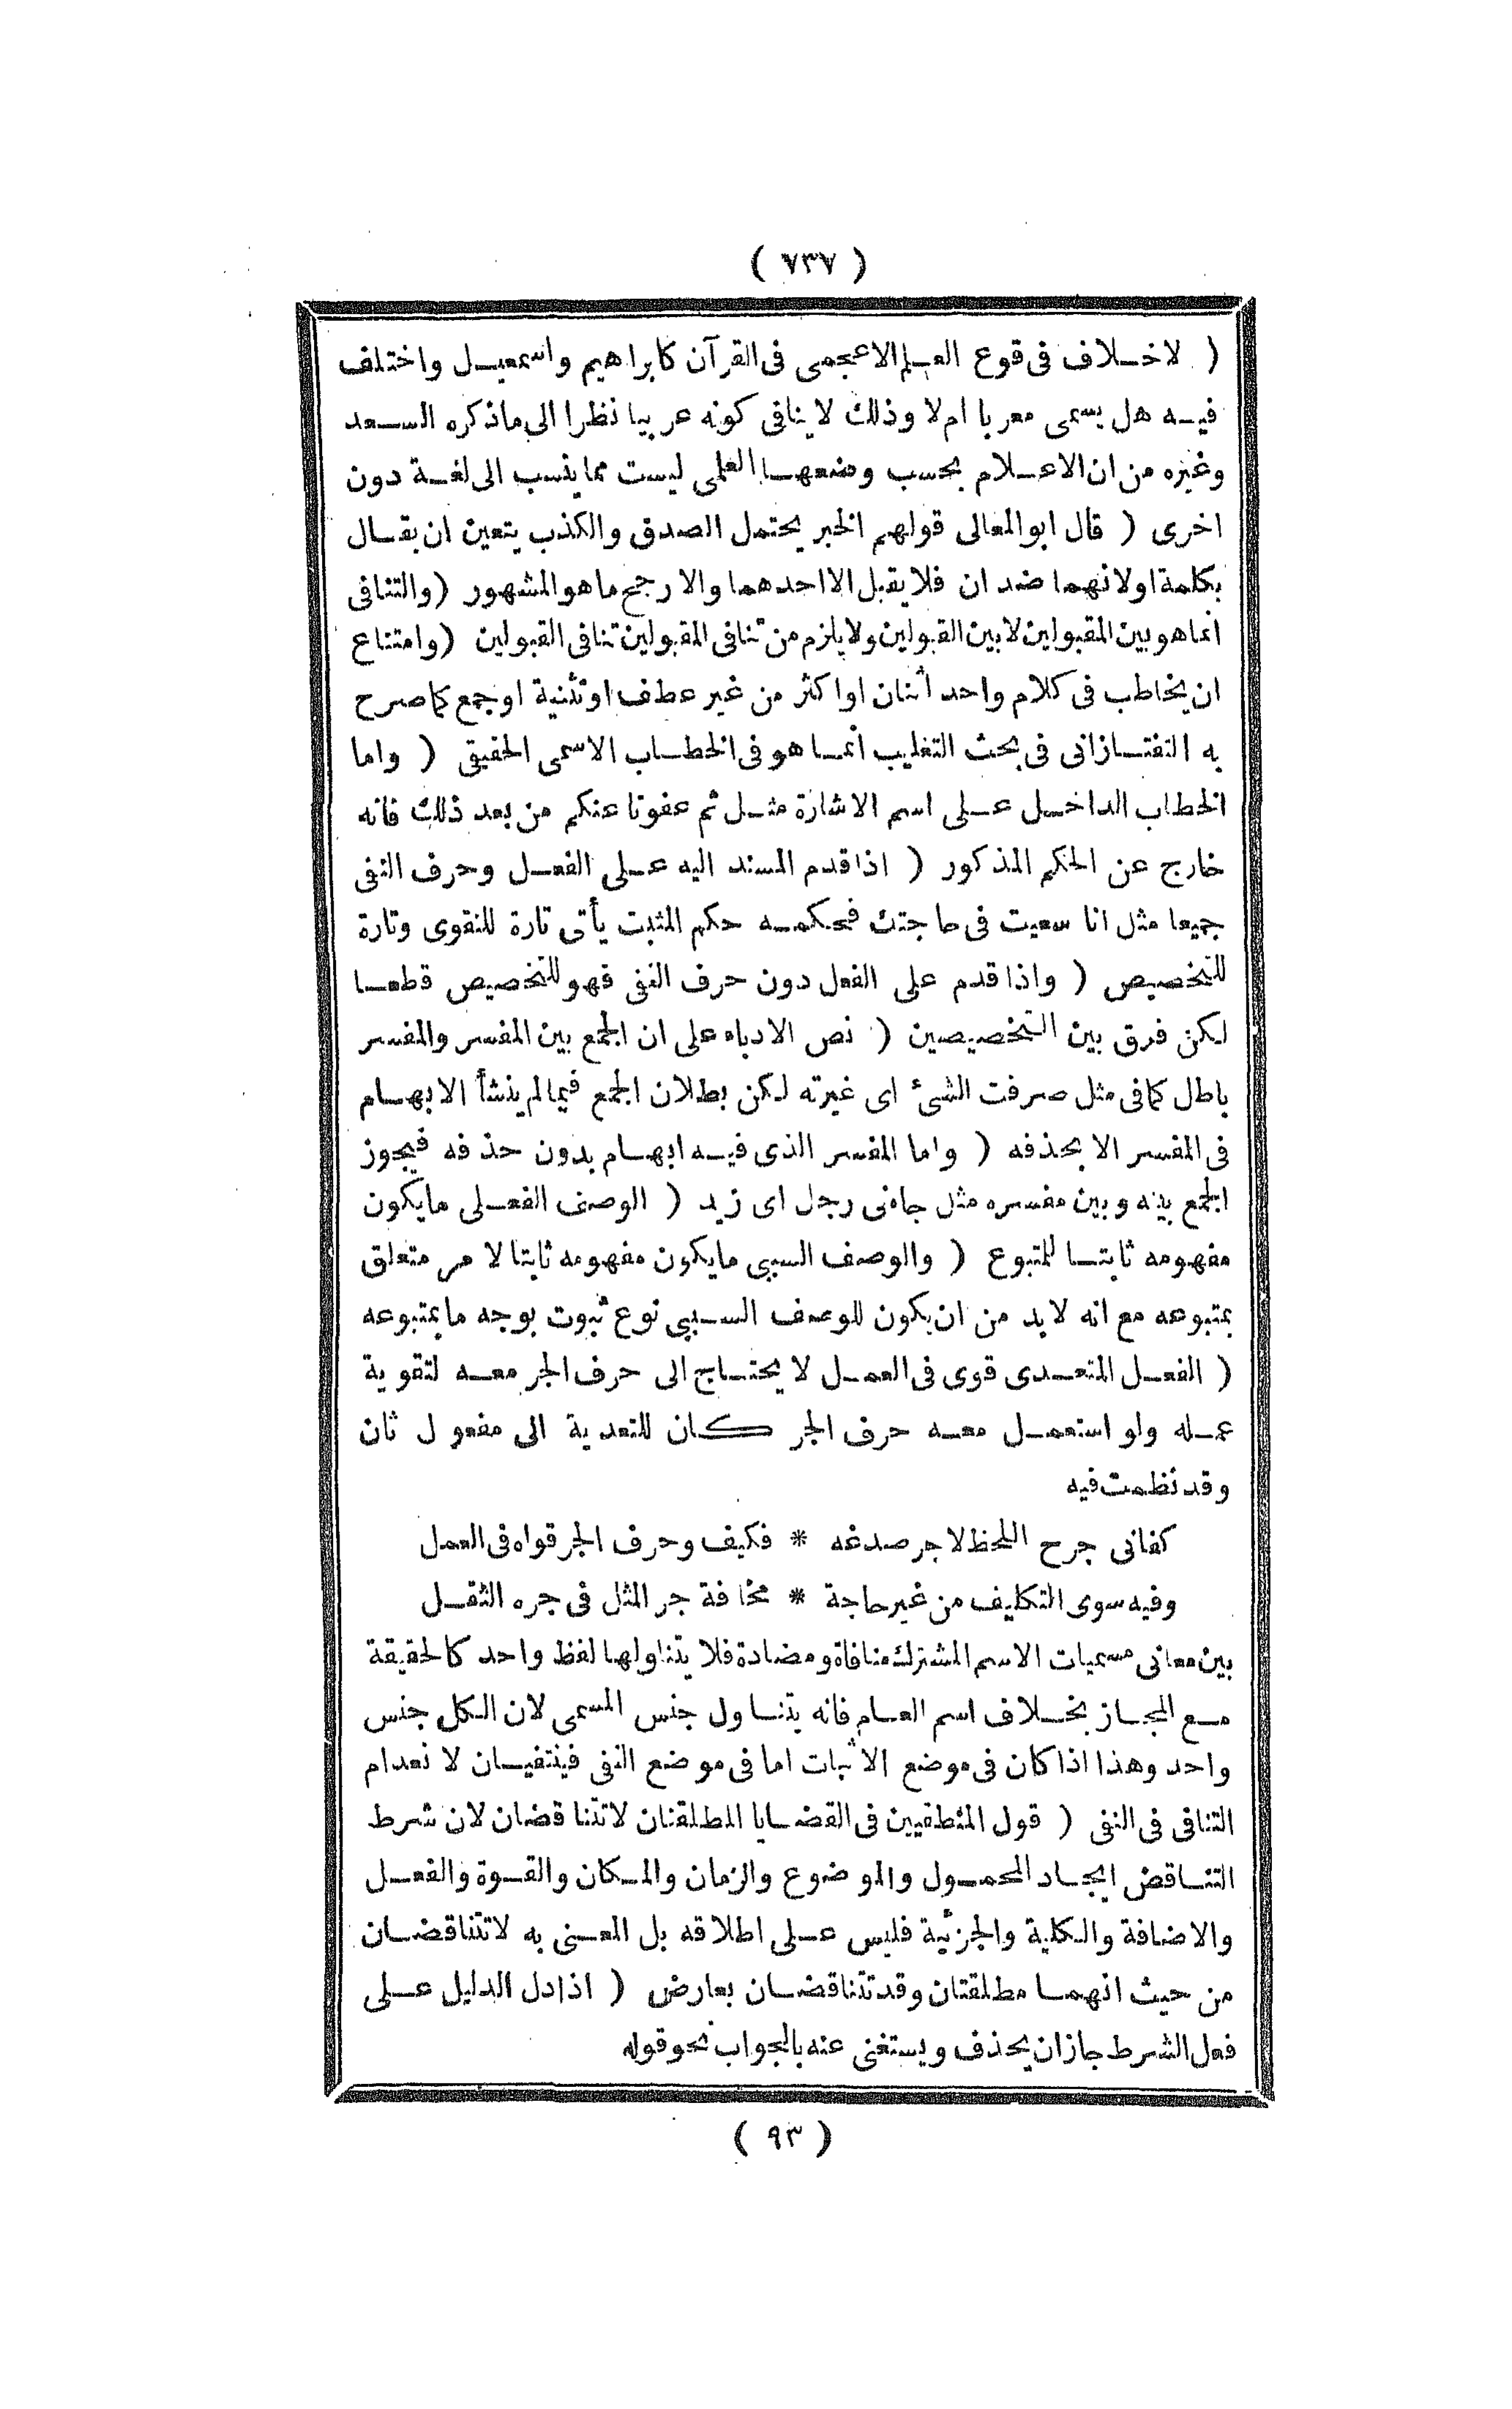 ( ٧٣٧ )
( لاخلاف فى قوع العلم الاعجمى فى القرآن كابراهيم واسمعيل واختلف
فيه هل يسمى معربا ام لا وذلك لا ينافى كونه عربيا نظرا الى ماذكره السعد
وغيره من ان الاعلام بحسب وضعها العلمى ليست مما ينسب الى لغة دون
اخرى ( قال ابو المعالى قولهم الخبر يحتمل الصدق والكذب يتعين ان يقال
بكلمة اولانهما ضدان فلا يقبل الا احدهما والارجح ماهو المشهور ( والتنافى
انما هو بين المقبولين لا بين القبولين ولا يلزم من تنافى المقبولين تنافى القبولين ( وامتناع
ان يخاطب فى كلام واحد اثنان او اكثر من غير عطف او تثنية او جمع كما صرح
به التفتازانى فى بحث التغليب انما هو فى الخطاب الاسمى الحقيقى ( واما
الخطاب الداخل على اسم الاشارة مثل ثم عفونا عنكم من بعد ذلك فانه
خارج عن الحكم المذكور ( اذا قدم المسند اليه على الفعل وحرف النفى
جميعا مثل انا سعيت فى حاجتك فحكمه حكم المثبت يأتى تارة للتقوى وتارة
للتخصيص ( واذا قدم على الفعل دون حرف النفى فهو للتخصيص قطعا
لكن فرق بين التخصيصين ( نص الادباء على ان الجمع بين المفسر والمفسر
باطل كما فى مثل صرفت الشئ اى غيرته لكن بطلان الجمع فيما لم ينشأ الابهام
فى المفسر الا بحذفه ( واما المفسر الذى فيه ابهام بدون حذفه فيجوز
الجمع بينه وبين مفسره مثل جاءنى رجل اى زيد ( الوصف الفعلى مايكون
مفهومه ثابتا للمتبوع ( والوصف السببى مايكون مفهومه ثابتا لامر متعلق
بمتبوعه مع انه لابد من ان يكون للوصف السببى نوع ثبوت بوجه ما بمتبوعه
( الفعل المتعدى قوى فى العمل لا يحتاج الى حرف الجر معه لتقوية
عمله ولو استعمل معه حرف الجر كان للتعدية الى مفعول ثان
وقد نظمت فيه
كفانى جرح اللحظ لاجر صدغه * فكيف وحرف الجر قواه فى العمل
وفيه سوى التكليف من غير حاجة * مخافة جر المثل فى جره الثقل
بين معانى مسميات الاسم المشترك منافاة ومضادة فلا يتناولها لفظ واحد كالحقيقة
مع المجاز بخلاف اسم العام فانه يتناول جنس المسمى لان الكل جنس
واحد وهذا اذا كان فى موضع الاثبات اما فى موضع النفى فينتفيان لانعدام
التنافى فى النفى ( قول المنطقيين فى القضايا المطلقتان لاتتناقضان لان شرط
التناقض ايجاد المحمول والموضوع والزمان والمكان والقوة والفعل
والاضافة والكلية والجزئية فليس على اطلاقه بل المعنى به لاتتناقضان
من حيث انهما مطلقتان وقد تتناقضان بعارض ( اذا دل الدليل على
فعل الشرط جاز ان يحذف ويستغنى عنه بالجواب نحو قوله
( ٩٣ )